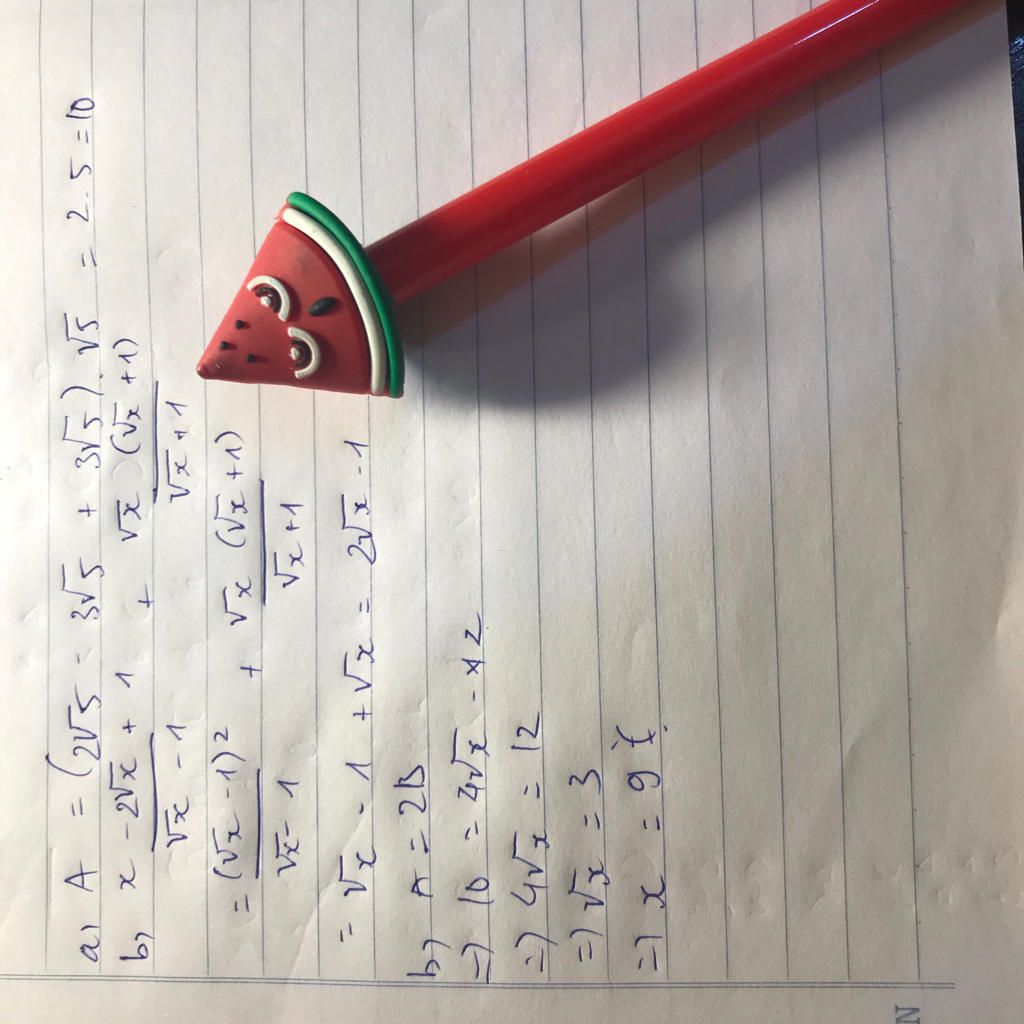 a) A = (2√5 - 3√5 + 3√5).√5 = 2.5 = 10
b) x - 2√x + 1 + √x (√x + 1)
√x - 1 √x + 1
= (√x - 1)² + √x (√x + 1)
√x - 1 √x + 1
= √x - 1 + √x = 2√x - 1
b) A = 2B
=) 10 = 4√x - 2
=) 4√x = 12
=) √x = 3
=) x = 9
N